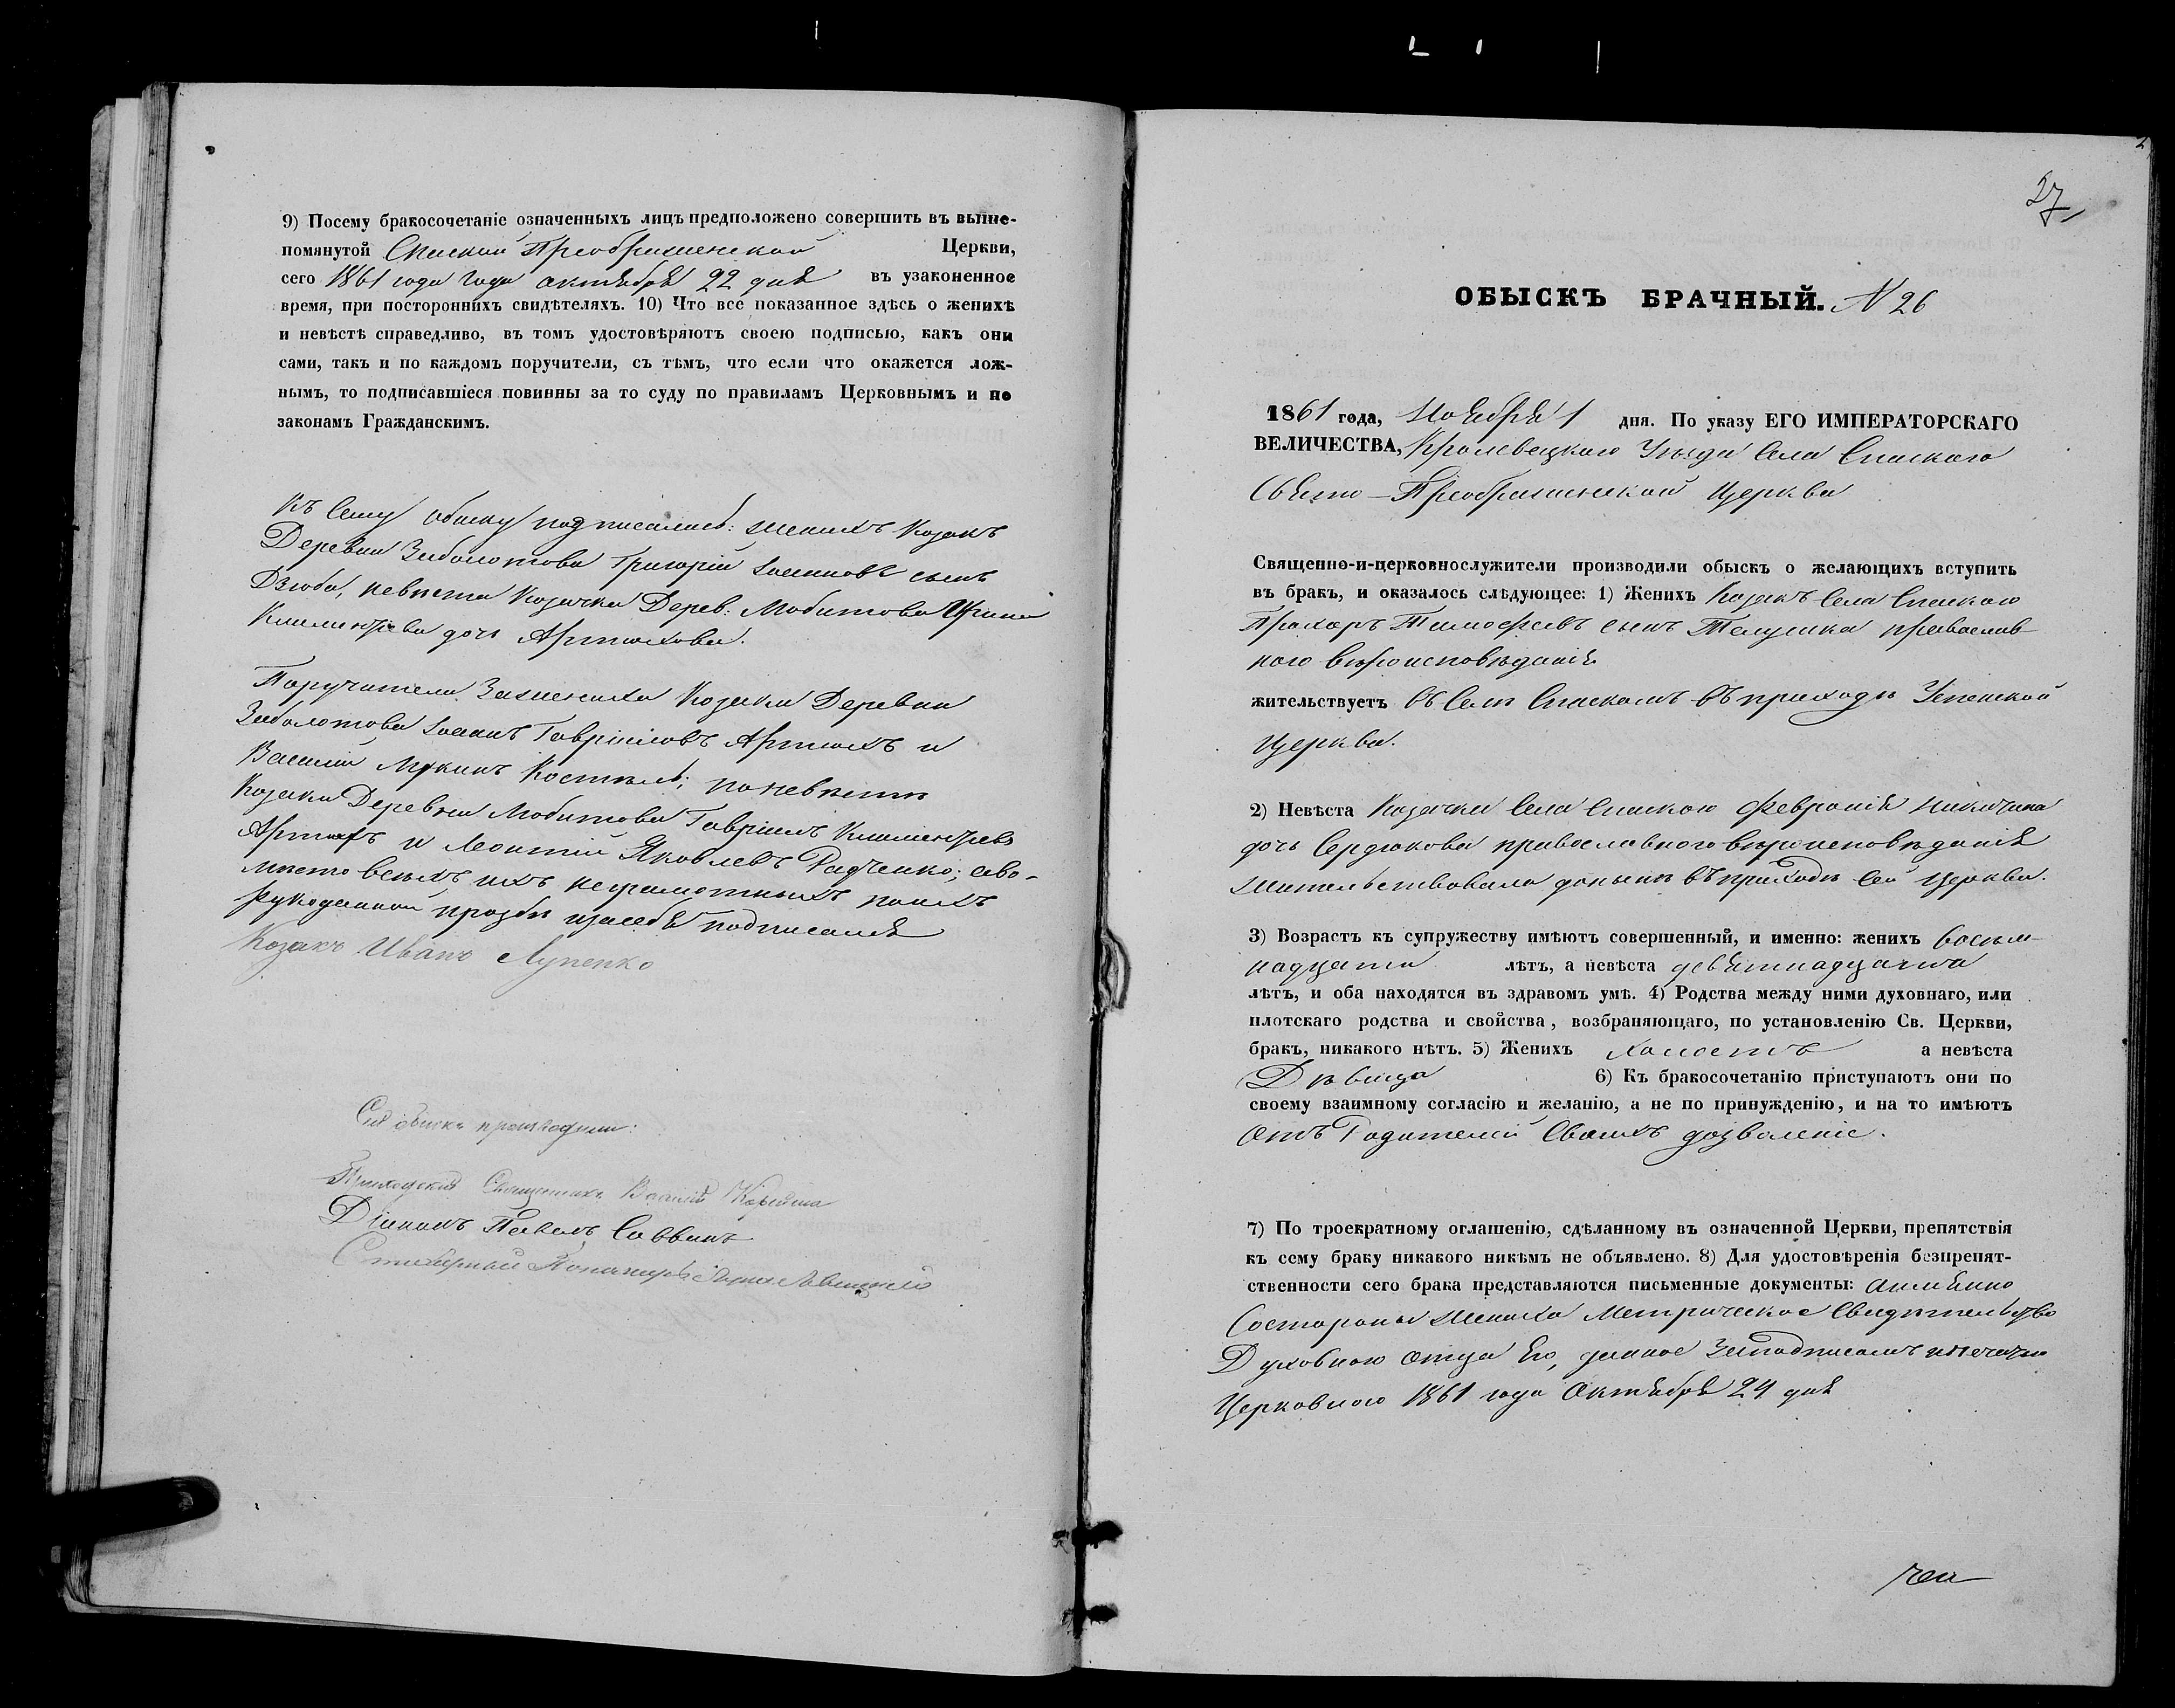 9) Посему бракосочетаніе означенныхъ лицъ предположено совершить въ выше-
помянутой Спаской Преображенской Церкви,
сего 1861 года года октября 22 дня въ узаконенное
время, при постороннихъ свидѣтеляхъ. 10) Что все показанное здѣсь о женихѣ
и невѣстѣ справедливо, въ томъ удостовѣряютъ своею подписью, какъ они
сами, такъ и по каждомъ поручители, съ тѣмъ, что если что окажется лож-
нымъ, то подписавшіеся повинны за то суду по правиламъ Церковнымъ и по
законамъ Гражданскимъ.
Къ сему обыску подписались: женихъ Козакъ
Деревни Заболотова Григорій Іоанновъ сынъ
Дзюба, невѣста Козачка Дерев: Мобитова Ирина
Климентіева дочь Артюхова.
Поручители Зажениха Козаки Деревни
Заболотова Іоаннъ Гавріиловъ Артюхъ и
Василій Костыль; поневѣстѣ
Козаки Деревни Мобитова Гавріилъ Климентіевъ
Артюхъ и Леонтій Яковлевъ Радченко; аво-
мѣсто всѣхъ ихъ неграмотныхъ поихъ
рукоданной прозбѣ изасебя подписался
Козакъ Иванъ Лупенко
Сей обыскъ производили:
Приходскій Священникъ Василій
Діаконъ Павелъ Саввинъ
Стихарный Понамарь
27
ОБЫСКЪ БРАЧНЫЙ. N 26
1861 года, Ноября 1 дня. По указу ЕГО ИМПЕРАТОРСКАГО
ВЕЛИЧЕСТВА, Кролевецкого Уѣзда Села Спаского
Свято-Преображенской Церкви
Священно-и-церковнослужители производили обыскъ о желающихъ вступить
въ бракъ, и оказалось слѣдующее: 1) Женихъ Козакъ Села Спаского
Прохоръ Тимофеевъ сынъ Телушка православ-
ного вѣроисповѣданія
жительствуетъ въ Селѣ Спаскомъ въ приходѣ Успенской
Церкви.
2) Невѣста Козачка Села Спаского Февронія Никитина
дочь Сердюкова православного вѣроисповѣданія
жительствовала донынѣ въ приходѣ сей Церкви.
3) Возрастъ къ супружеству имѣютъ совершенный, и именно: женихъ восем-
надцати лѣтъ, а невѣста девятнадцати
лѣтъ, и оба находятся въ здравомъ умѣ. 4) Родства между ними духовнаго, или
плотскаго родства и свойства, возбраняющаго, по установленію Св. Церкви,
бракъ, никакого нѣтъ. 5) Женихъ холостъ а невѣста
Дѣвица 6) Къ бракосочетанію приступаютъ они по
своему взаимному согласію и желанію, а не по принужденію, и на то имѣютъ
отъ Родителей Своихъ дозволеніе.
7) По троекратному оглашенію, сдѣланному въ означенной Церкви, препятствія
къ сему браку никакого никѣмъ не объявлено. 8) Для удостовѣренія безпрепят-
ственности сего брака представляются письменные документы: аимянно
Состороны жениха Метрическое Свидѣтельство
Духовного отца Его, данное Заподписомъ ипечатю
Церковною 1861 года Октября 24 дня